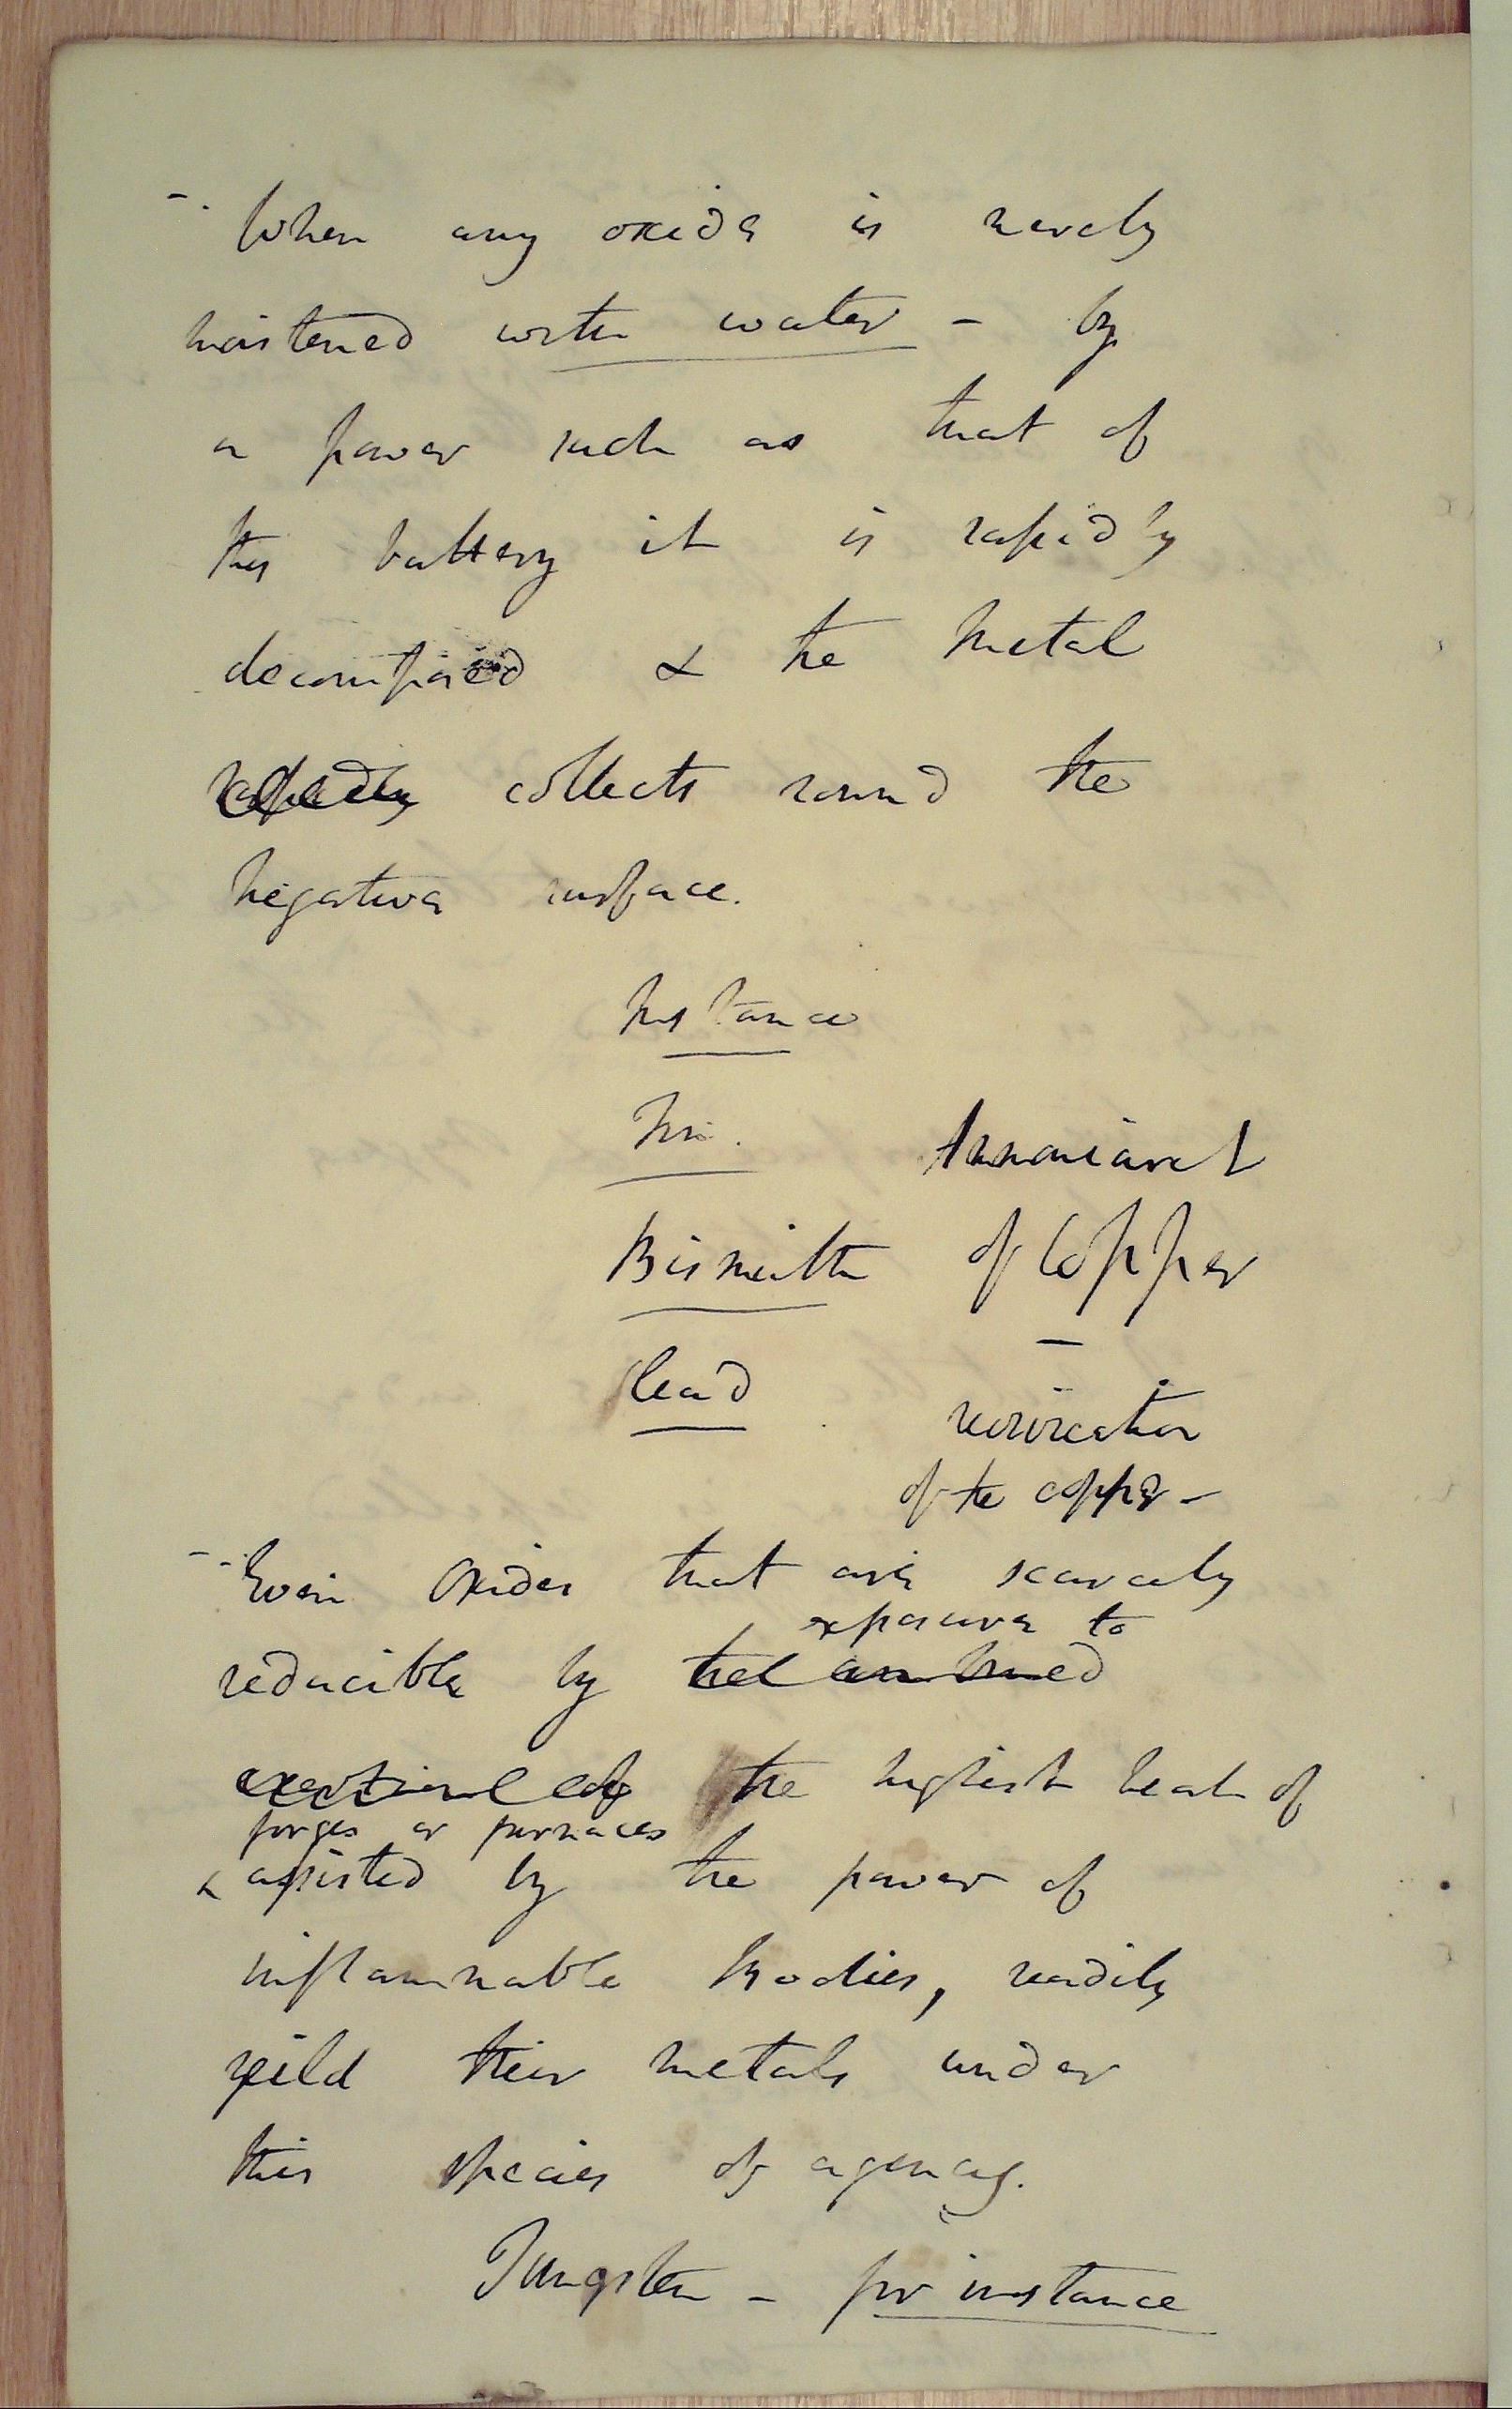 -. When any oxide is merely
moistened with water - by
a power such as that of
the battery it is rapidly
decomposed & the metal
rapidly collects round the
negative surface.
Instance
Tin.
Ammoniaret
Bismuth
of Copper
-
Lead
revivication
of the copper -
-. Even Oxides that are scarcely
exposure to
reducible by the combined
exertion of the highest heat of
forges or furnaces
& assisted by the power of
inflammable bodies, readily
yeild their metals under
this species of agency.
Tungsten - for instance